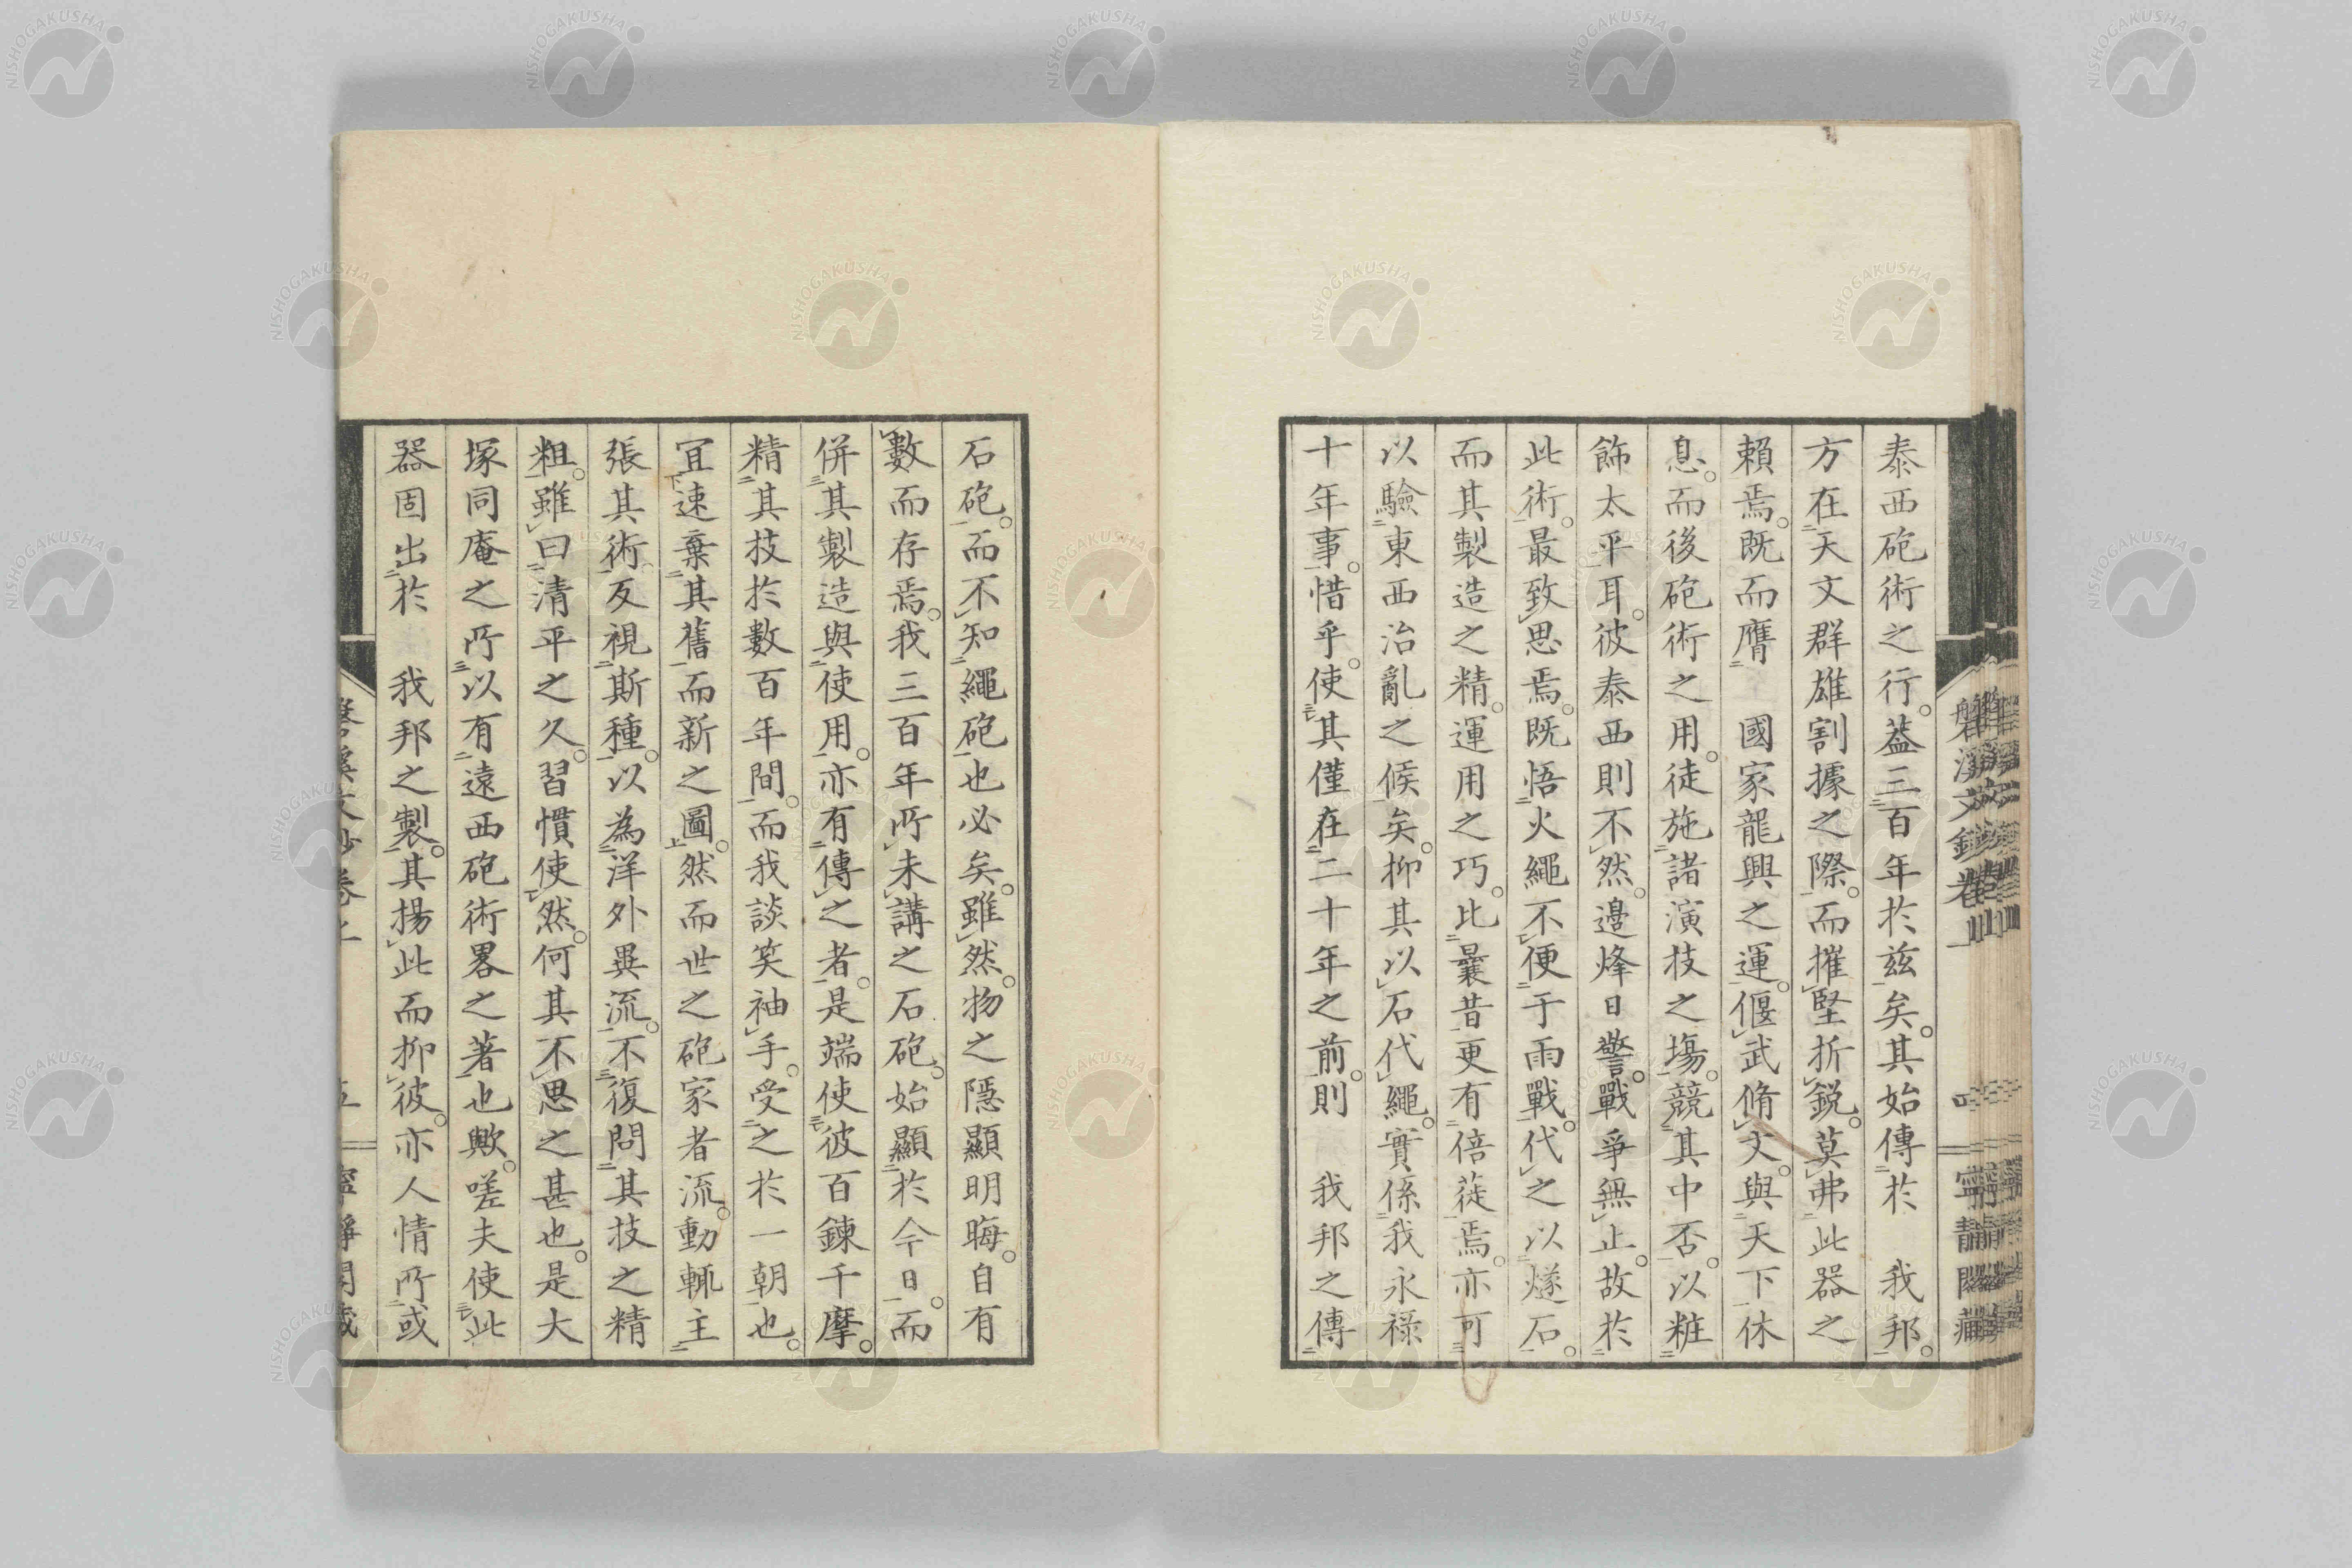 泰西砲術之行。葢三百年於茲矣。其始傳於　我邦。
方在天文群雄割據之際。而摧堅折鋭。莫弗此器之
賴焉。既而膺　國家龍興之運。偃武脩文。與天下休
息。而後砲術之用。徒施諸演技之塲。競其中否。以粧
飾太平耳。彼泰西則不然。邊烽日警。戰爭無止。故於
此術。最致思焉。既悟火繩不便于雨戰。代之以燧石。
而其製造之精。運用之巧。比曩昔更有倍蓰焉。亦可
以驗東西治亂之候矣。抑其以石代繩。實係我永祿
十年事。惜乎。使其僅在二十年之前。則　我邦之傳
石砲。而不知繩砲也必矣。雖然。物之隱顯明晦。自有
數而存焉。我三百年所未講之石砲。始顯於今日。而
併其製造與使用。亦有傳之者。是端使彼百鍊千摩。
精其技於數百年間。而我談笑袖手。受之於一朝也。
冝速棄其舊而新之圖。然而世之砲家者流。動輒主
張其術。反視斯種。以為洋外異流。不復問其技之精
粗。雖曰清平之久。習慣使然。何其不思之甚也。是大
塚同庵之所以有遠西砲術畧之著也歟。嗟夫使此
器固出於　我邦之製。其揚此而抑彼。亦人情所或
磐溪文鈔卷一
四
寧靜閣藏
NISHOGAKUSHA